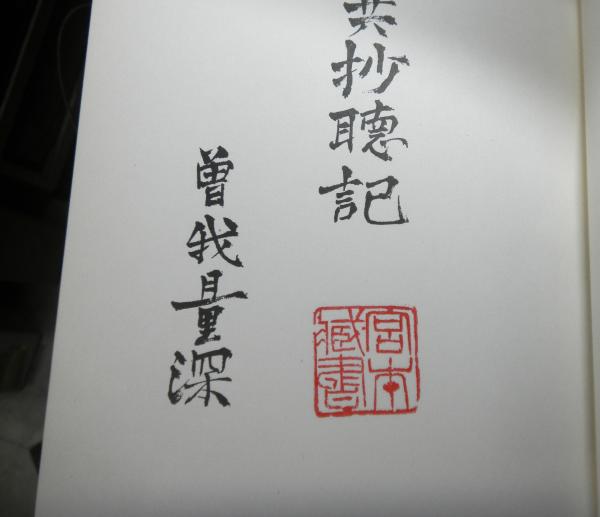 異抄聴記
曾我量深
宮本
藏書